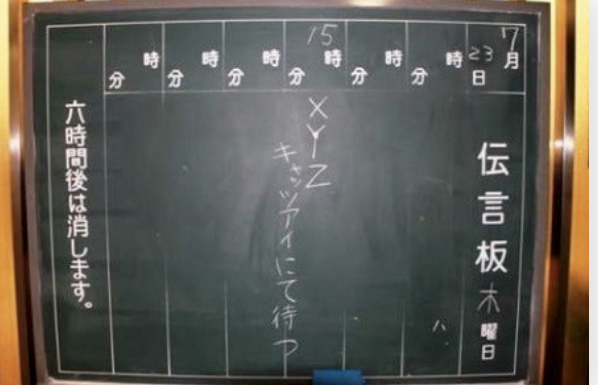 7月23日
伝言板 木曜日
時 分
時 分
時 分
15時 分
XYZ
キャッツアイにて待つ
時 分
時 分
六時間後は消します。